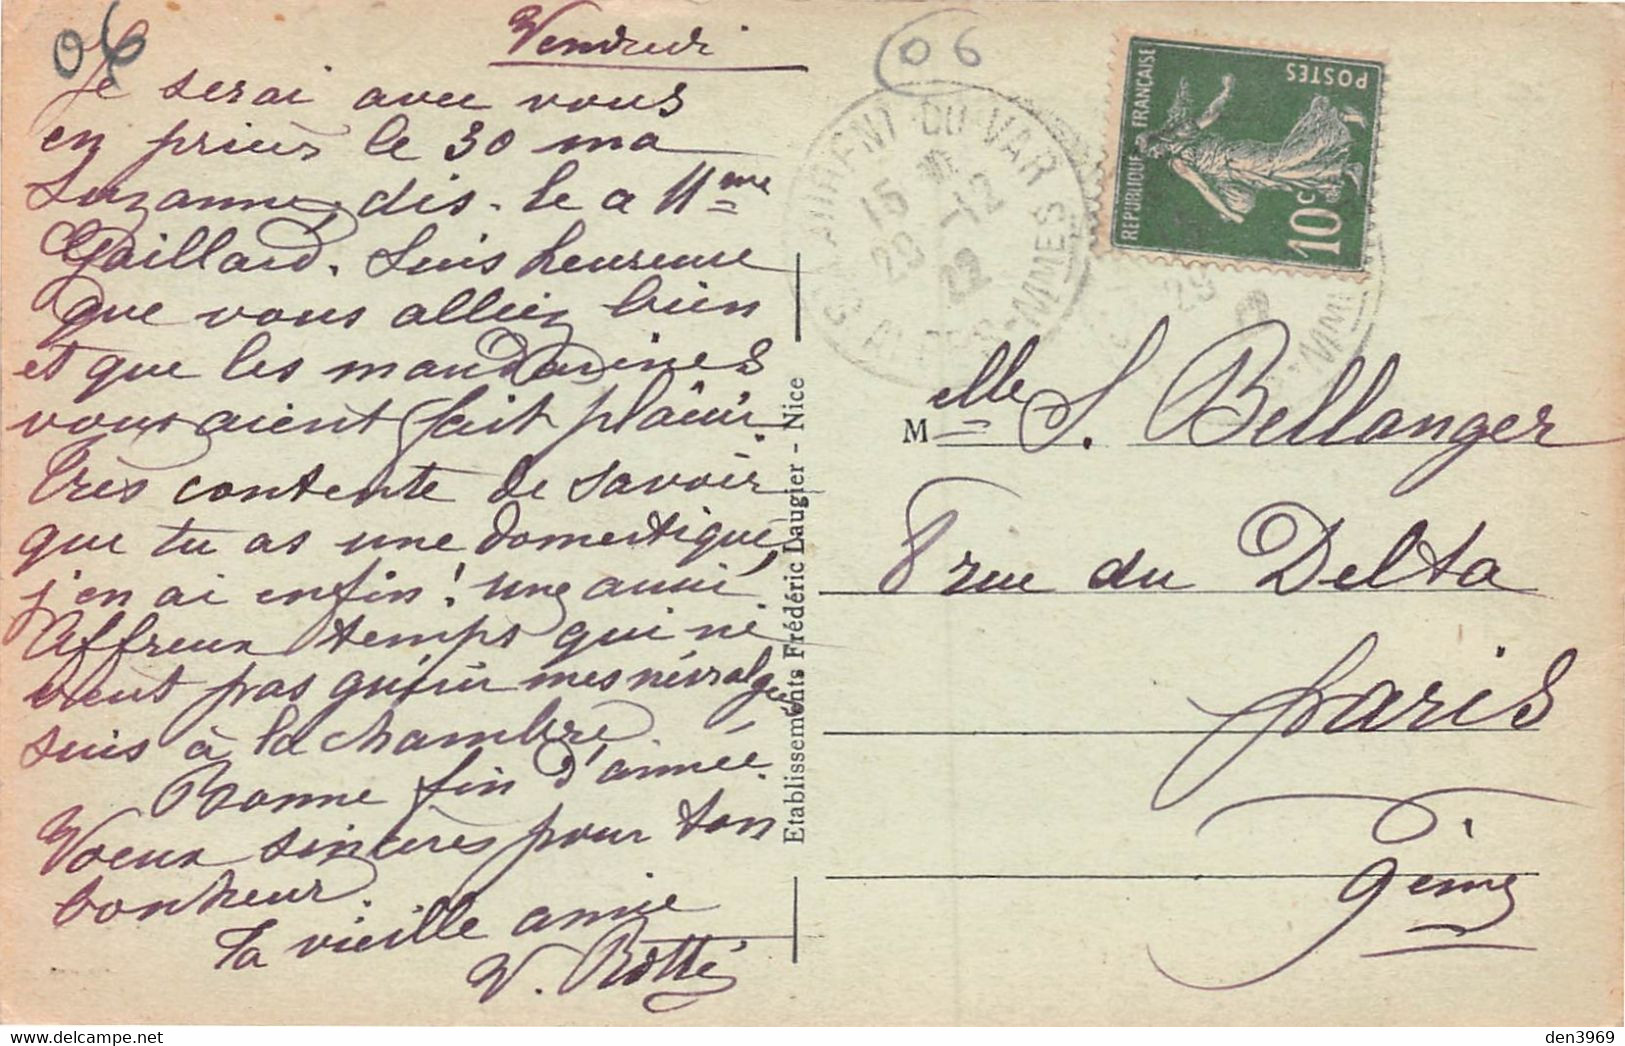 06
Vendredi
Je serai avec vous
en prières le 30 ma
Suzanne, dis-le a Mme
Gaillard. Suis heureuse
que vous alliez bien
et que les mandarines
vous aient fait plaisir.
Très contente de savoir
que tu as une domestique,
j'en ai enfin! une aussi
Affreux temps qui ne
veut pas guérir mes névralgies
suis à la chambre
Bonne fin d'année.
Voeux sincères pour ton
bonheur.
Ta vieille amie
V. Rotté
Etablissements Frédéric Laugier - Nice
06
LAURENT-DU-VAR
15
29 -12
22
ALPES-MMES
POSTES
REPUBLIQUE FRANÇAISE
10c
29
Melle S. Bellanger
8 rue du Delta
Paris
9ème
den3969